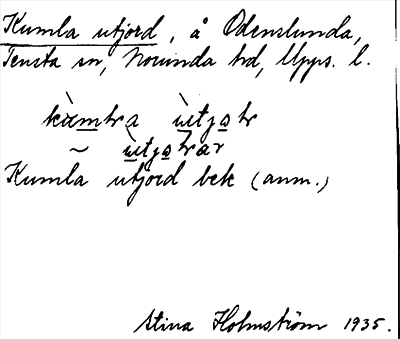 Kumla utjord, å Odenslunda,
Tensta sn, Norunda hd, Upps. l.
Kumla utjord bek (anm.)
Stina Holmström 1935.